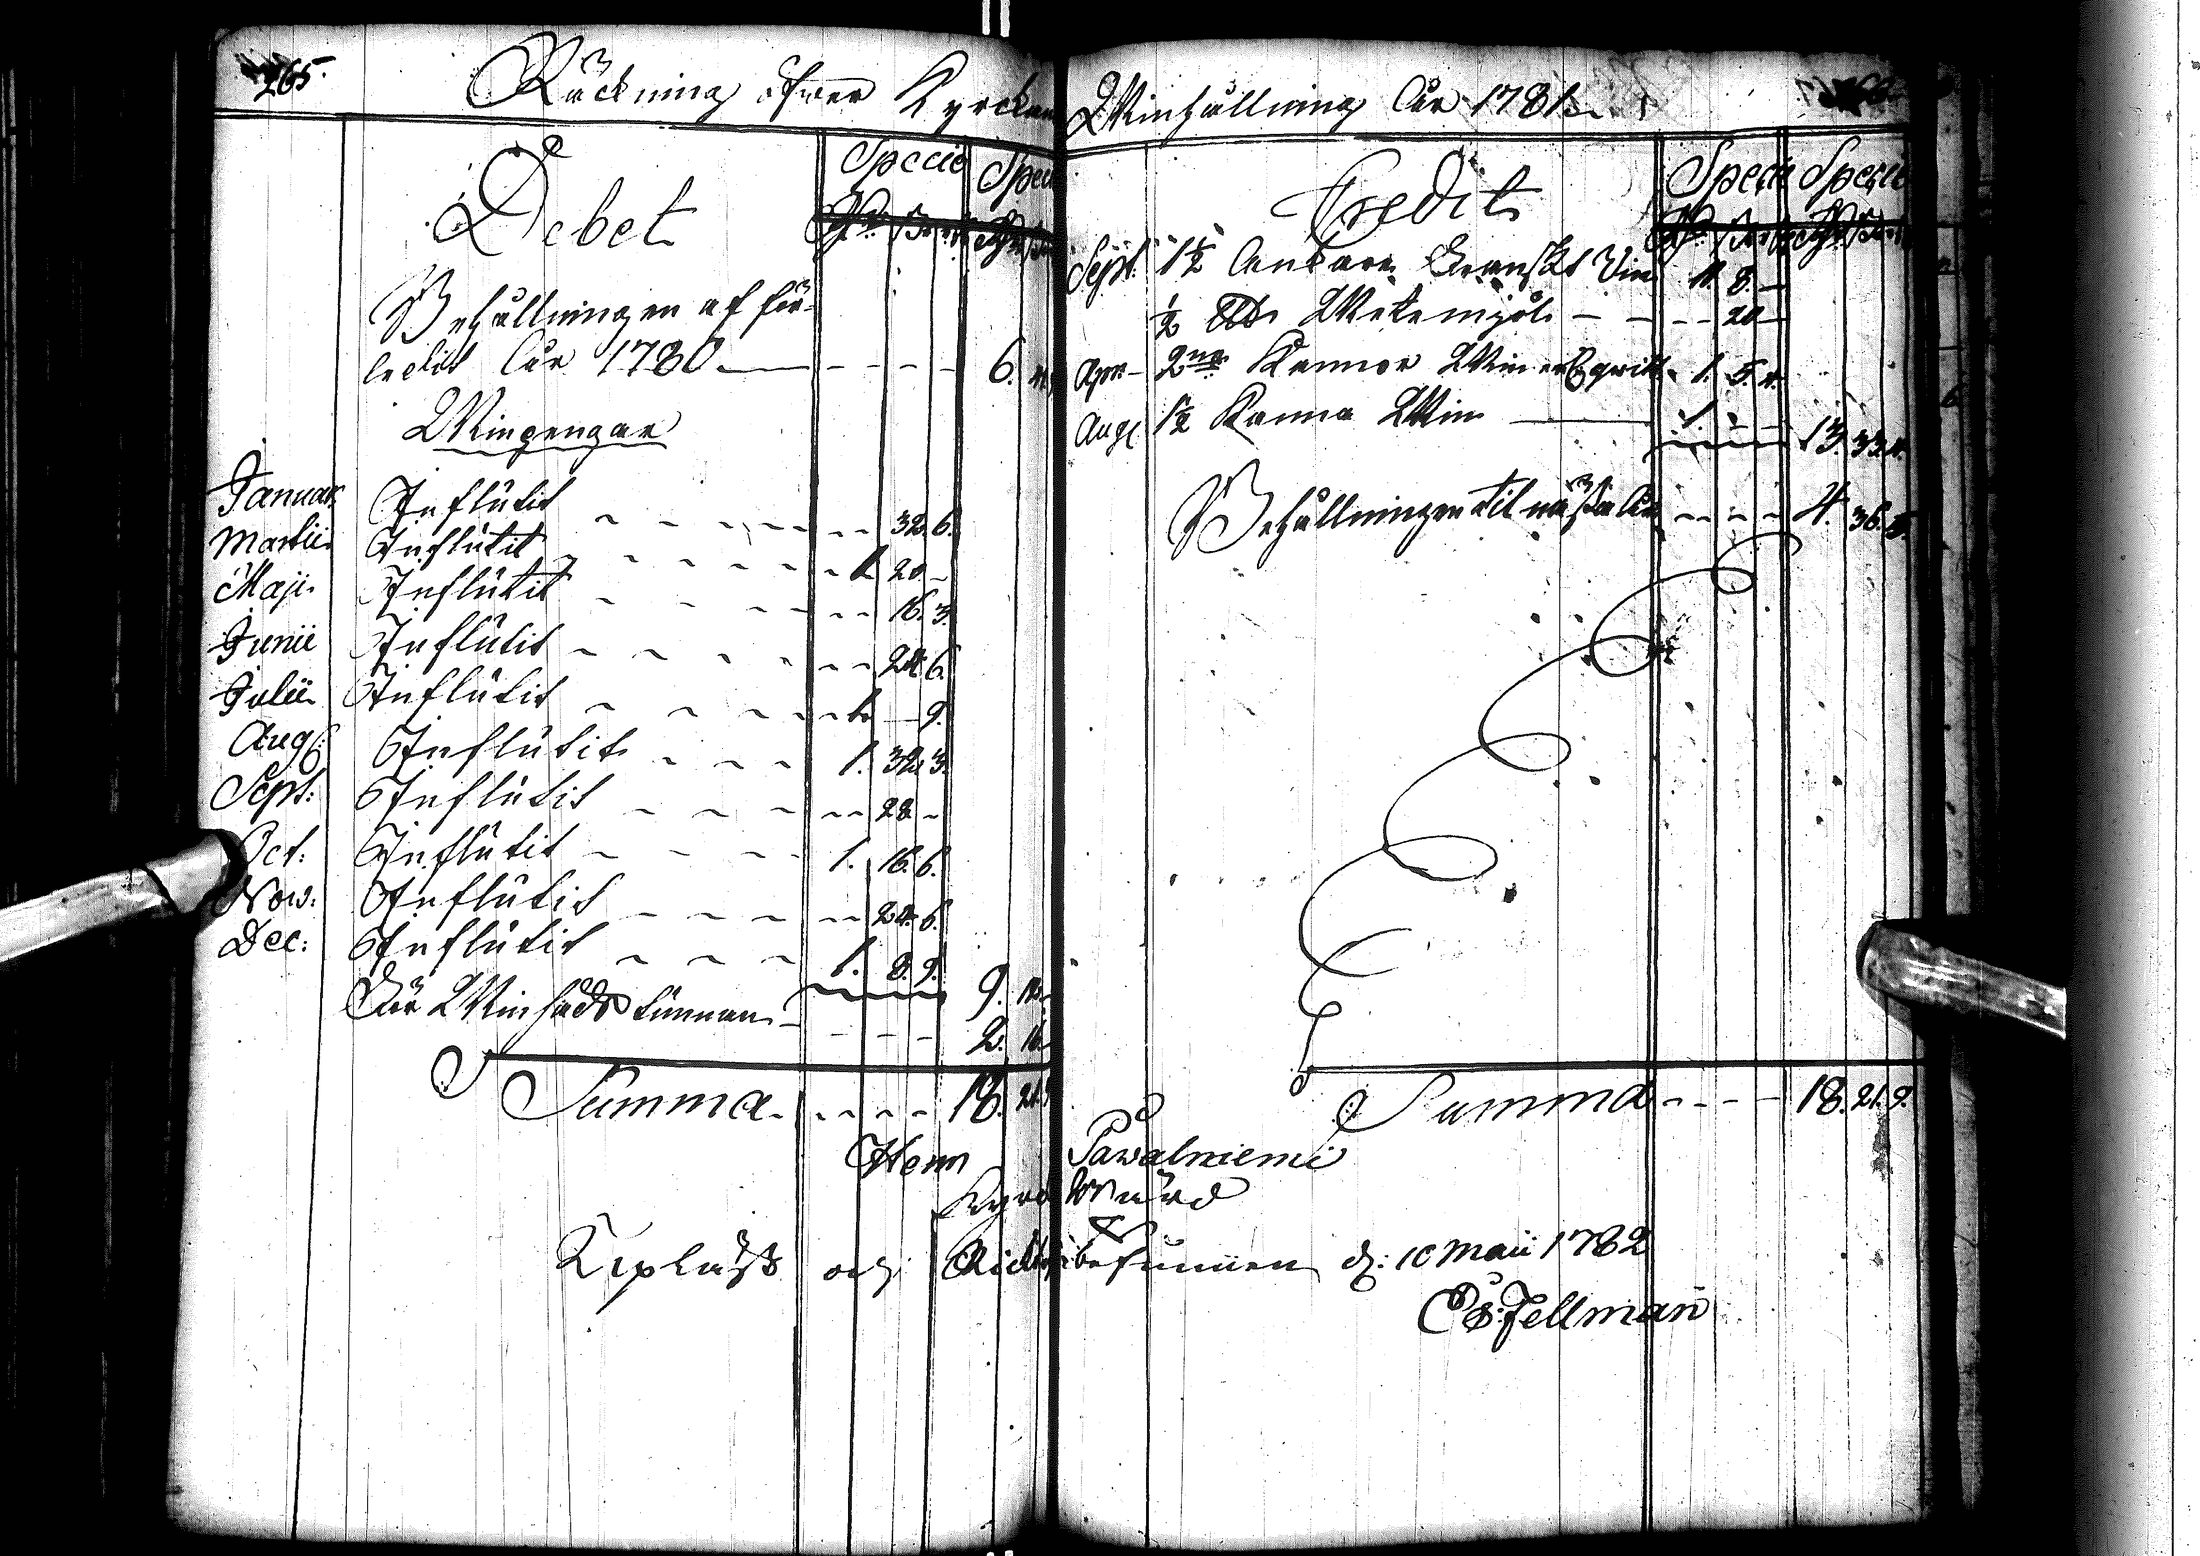 265.
Räckning öfwer Kyrckans
Debet
Specie Specie
Behållningen af för-
ledit Åhr 1780 - - - - 6.
Winpengar
Januar Influtit - - - - 32. 6.
Martii Influtit - - - - 1. 20 -
Maji Influtit - - - - 16. 3.
Junii Influtit - - - - 24. 6.
Julii Influtit - - - - 1. - 9.
Aug: Influtit - - - - 1. 32. 3.
Sept: Influtit - - - - 28 -
Oct: Influtit - - - - 1. 16. 6.
Now: Influtit - - - - 24. 6.
Dec: Influtit - - - - 1. 8. 9. 9.
För Winsäds tunnan - - - - 2. 16.
Summa - - - - 18. 21.
Winhållning Åhr 1781.
Credit
Specie Specie
Sept: 1½ Ankare Franskt Vin 11. 8. -
½ Wetemjöl - - - 20 -
Apr. 2ne Kannor Win 1. 5. 4.
Aug: 1½ Kanna Win 1. - - 13. 33. 4.
Behållningen til nästa Åhr - - - - 4. 36. 5.
Summa - - - - 18. 21. 9.
Henr Pawalniemi
Kyrckwärd
Upläst och Richtig befunnen d: 10 Maii 1782
Es: Fellman